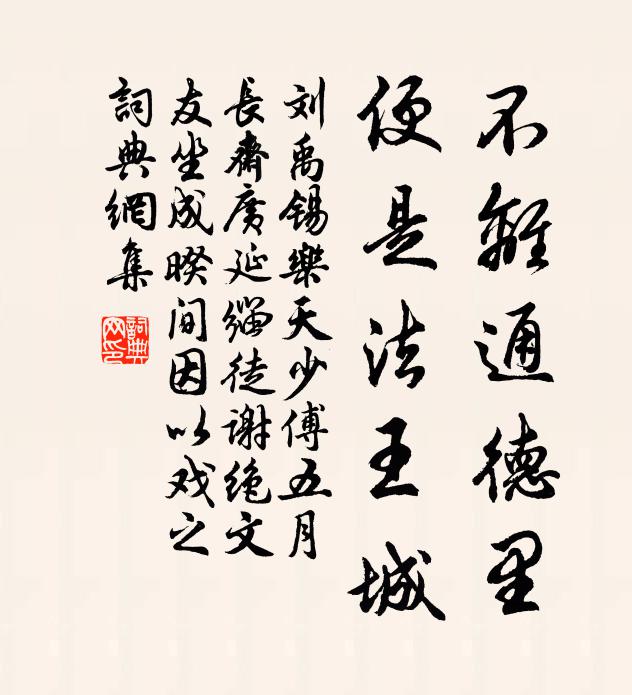 不離通德里
便是法王城
刘禹锡樂天少傅五月
長齋广延缁徒谢绝文
友坐成睽间因以戏之
詞典網集
詞典网印